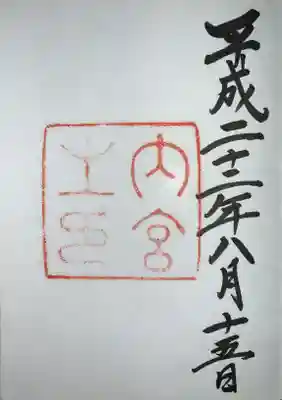 平成二十二年八月十五日
内宮
之印